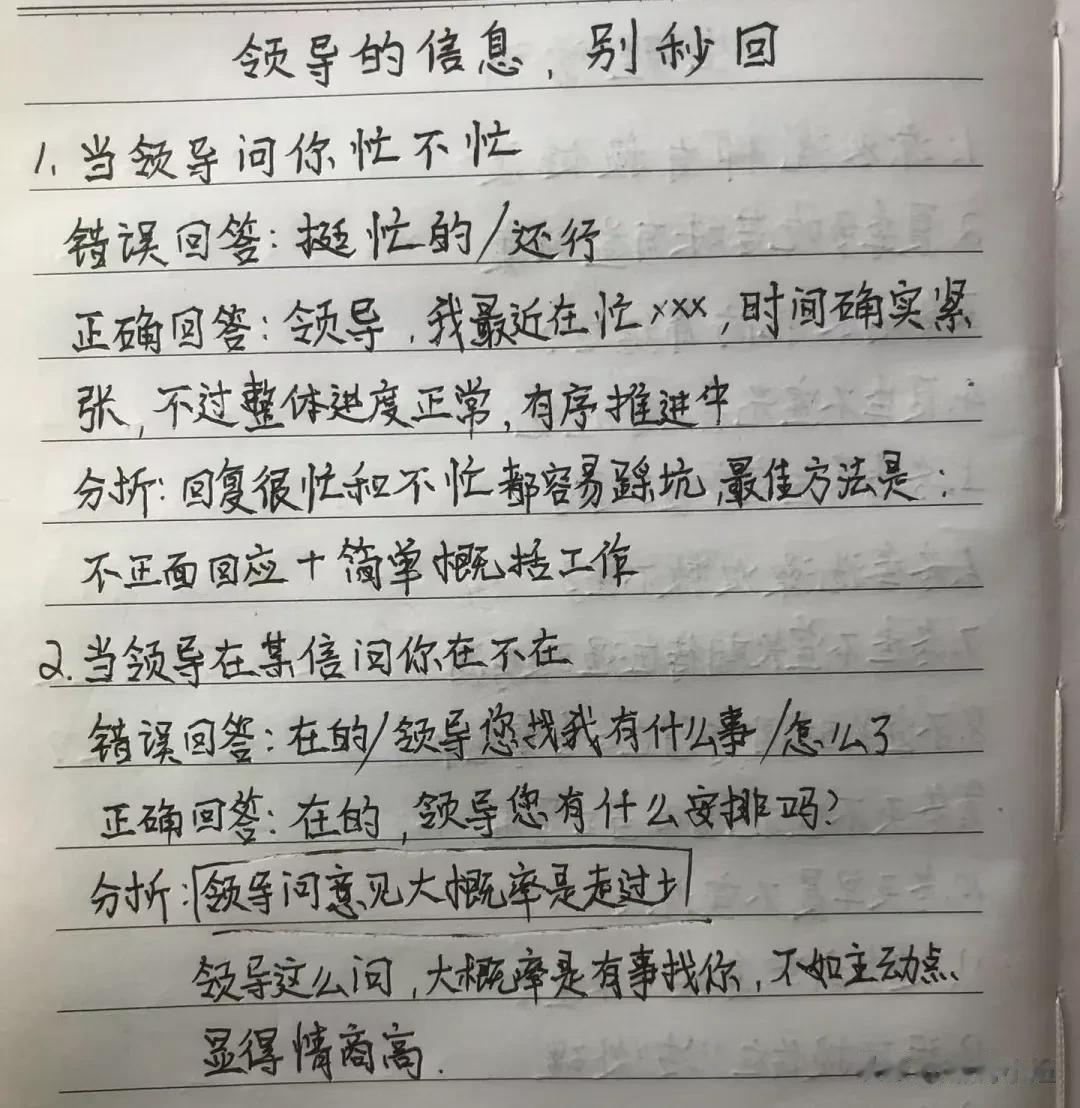 领导的信息，别秒回
1、当领导问你忙不忙
错误回答：挺忙的/还行
正确回答：领导，我最近在忙×××，时间确实紧
张，不过整体进度正常，有序推进中
分析：回复很忙和不忙都容易踩坑，最佳方法是：
不正面回应+简单概括工作
2.当领导在某信问你在不在
错误回答：在的/领导您找我有什么事/怎么了
正确回答：在的，领导您有什么安排吗？
分析：领导问意见大概率是走过士
领导这么问，大概率是有事找你，不如主动点、
显得情商高.